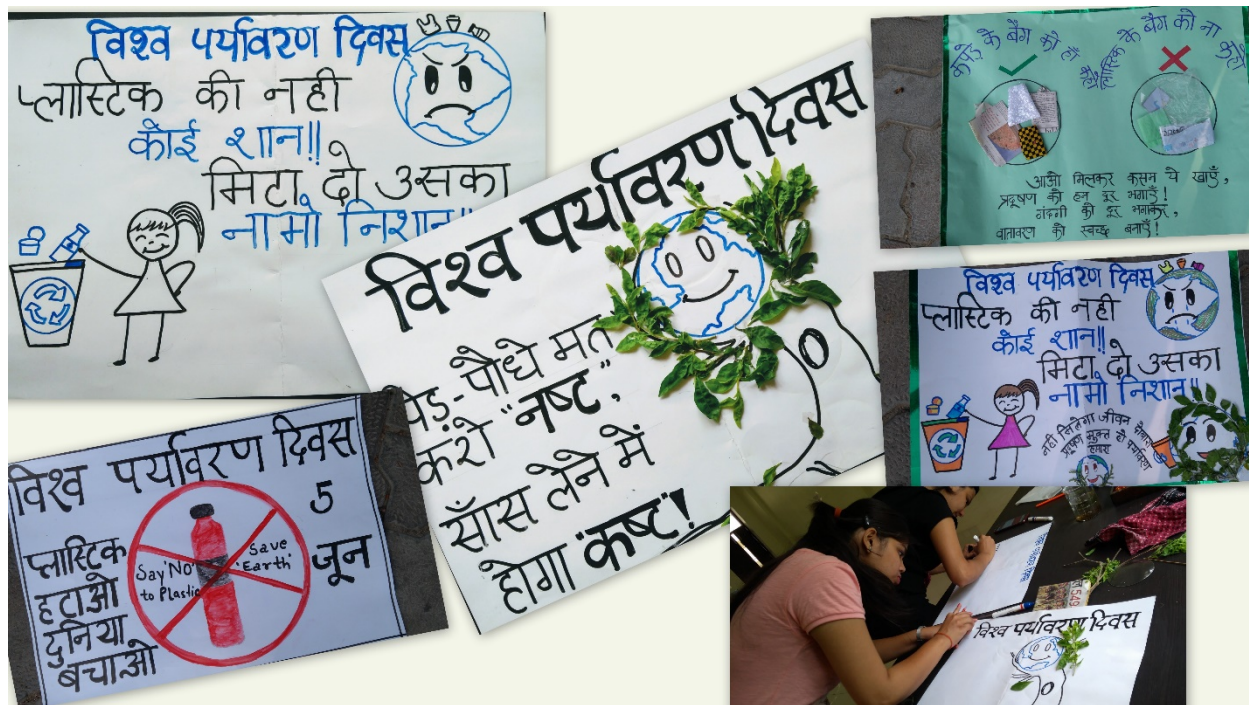 विश्व पर्यावरण दिवस
प्लास्टिक की नही
कोई शान!!
मिटा दो उसका
नामो निशान!!
विश्व पर्यावरण दिवस
पेड़-पौधे मत
करो "नष्ट",
साँस लेने में
होगा "कष्ट"!
कपड़े के बैग को हाँ
प्लास्टिक के बैग को ना कहो
आओ मिलकर कसम ये खाएँ,
प्रदूषण को हम दूर भगाएँ!
गंदगी को दूर भगाकर,
वातावरण को स्वच्छ बनाएँ!
विश्व पर्यावरण दिवस
प्लास्टिक की नही
कोई शान!!
मिटा दो उसका
नामो निशान!!
नही मिलेगा जीवन
प्रदूषण मुक्त हो पर्यावरण
हमारा
विश्व पर्यावरण दिवस
5
जून
प्लास्टिक
हटाओ
दुनिया
बचाओ
Say 'NO'
to Plastic
Save
'Earth'
विश्व पर्यावरण दिवस